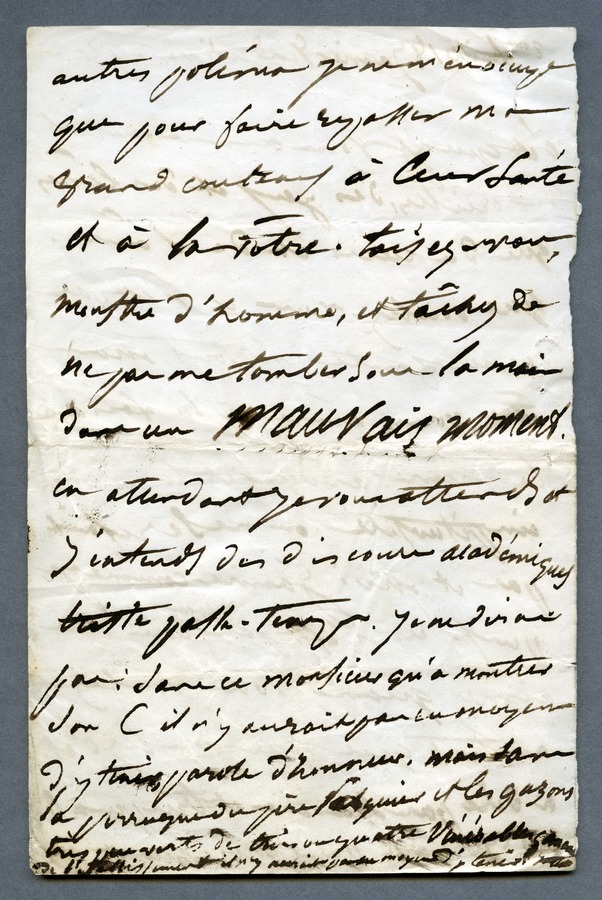 autres
que pour faire repasser mon
grand couteau à leur santé
et à la vôtre. taisez-vous,
monstre d'homme, et tâchez de
ne pas me tomber sous la main
dans un mauvais moment.
en attendant je vous attends et
j'entends des discours académiques
triste passe-temps. je ne dis
pas: sans ce monsieur qu'a montrer
son C il n'y aurait pas eu moyen
d'y tenir, parole d'honneur. mais sans
la perruque du père et les gazons
très peu verts de trois ou quatre
il n'y aurait pas eu moyen d'y tenir